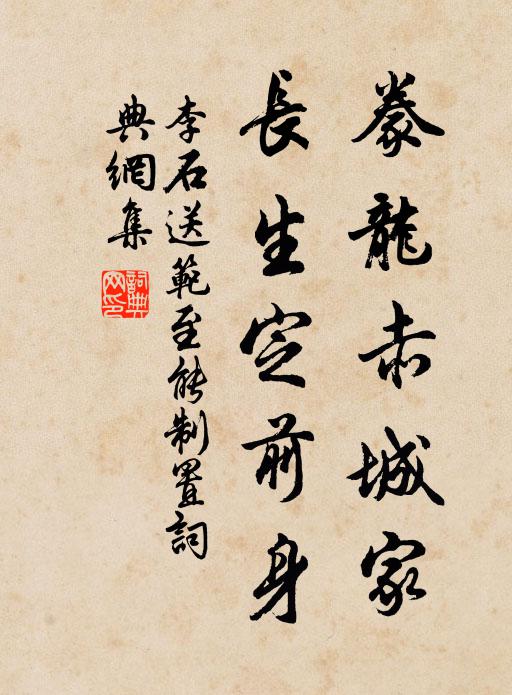 豢龍赤城家
長生定前身
李石送範至能制置詞
典網集
詞典网印